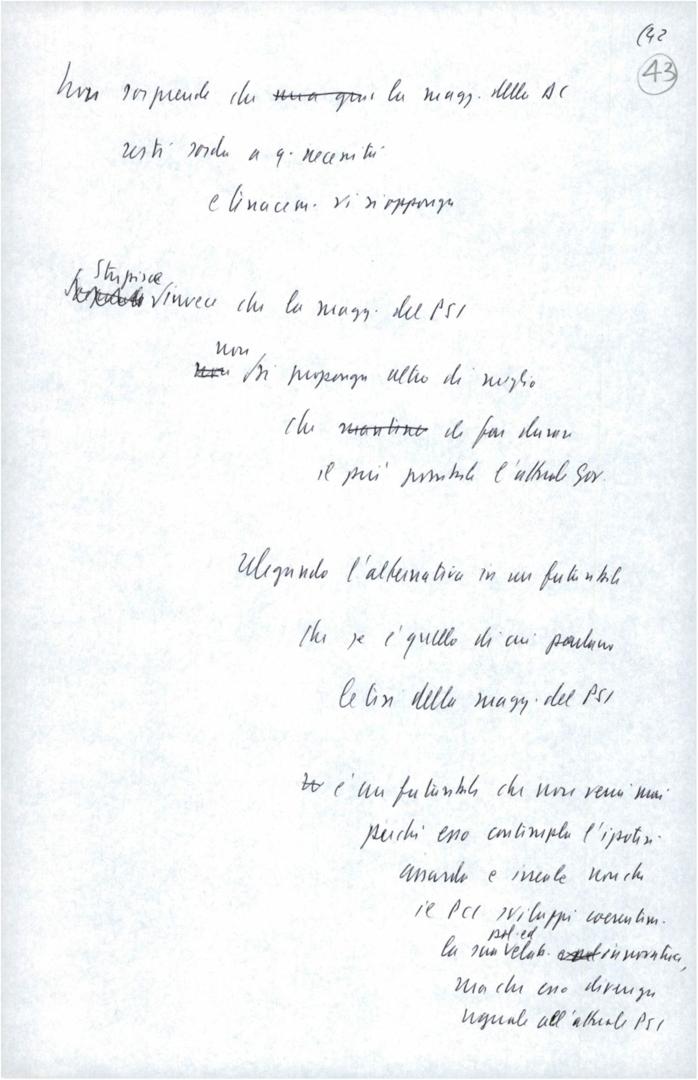 (42
43
Non sorprende che la magg. della DC
resti sorda a q. necessità
e tinacem. vi si opponga
Stupisce invece che la magg. del PSI
non si proponga altro di meglio
che di far durare
il più possibile l'attuale Gov.
Relegando l'alternativa in un futuribile
che se è quello di cui parlano
le tesi della magg. del PSI
è un futuribile che non verrà mai
perché esso contempla l'ipotesi
assurda e irreale non che
il PCI sviluppi coerentem.
la sua pol. ed elab. innovatrice,
ma che esso divenga
uguale all'attuale PSI